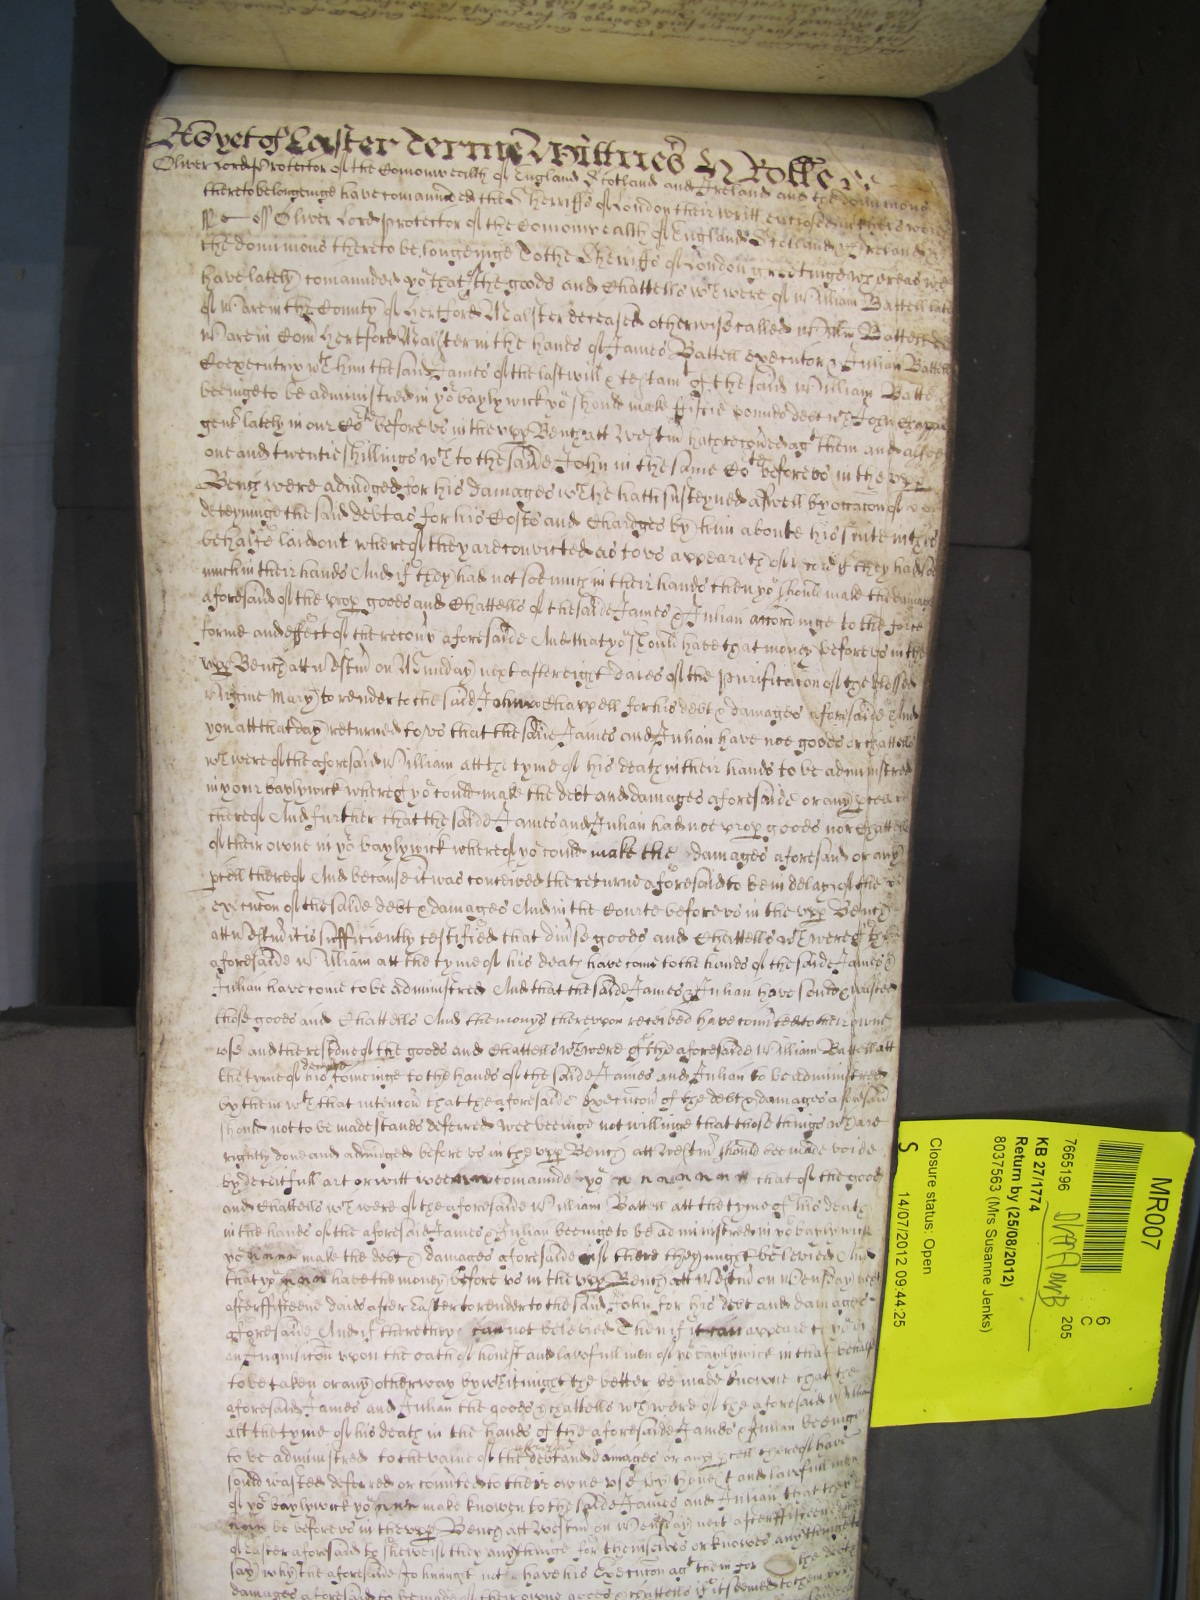 As yet of Easter Terme Wittnes H Rolle
Oliver Lord Protector of the Comonwealth of England Scotland and Ireland and the dominions
thereto belonginge have comaunded the Sherriffs of London their writt enclosed in theis words
ss Oliver Lord protector of the Comonwealth of England Scotland & Ireland &
the dominions thereto belonginge To the Sherriffs of London greetinge whereas wee
have lately comaunded yo that of the goods and Chattells wch were of William Battell late
of Ware in the County of Hertford Malster deceased otherwise called Willm Battell of
Ware in Com Hertford Malster in the hands of James Battell executor & Julian Battell
Coexecutrix wth him the said James of the last will & testamt of the said William Battell
beeinge to be administred in yor baylywick yo should make fiftie pounds debt wch John Chappell
gent lately in our Cort before us in the upp Bench att Westm hath recoved agt them and alsoe
one and twentie shillings wch to the saide John in the same Cort before us in the upp
Bench were adiudged for his damages wch he hath susteyned aswell by occacon of the
deteyninge the said debt as for his Costs and Chardges by him aboute his suite in this
behalfe laid out whereof they are convicted as to us appeareth of record if they had soe
much in their hands And if they had not soe much in their hands then yo should make the damages
aforesaid of the prop goods and Chattells of the saide James & Julian accordinge to the force
forme and effect of the recovy aforesaide And that yo should have that money before us in the
upp Bench att Westm on Munday next after eight daies of the purificacon of the blessed
Virgine Mary to render to the saide John Chappell for his debt & damages aforesaide And
you att that day returned to us that the saide James and Julian have noe goods or chattells
wch were of the aforesaid William att the tyme of his death in their hands to be administred
in your baylywick whereof yo could make the debt and damages aforesaide or any pcell
thereof And further that the saide James and Julian had noe prop goods nor Chattells
of their owne in yor baylywick whereof yo could make the damages aforesaid or any
pcell thereof And because it was conceived the returne aforesaid to be in delay of the
execucon of the saide debt & damages And in the Courte before us in the upp Bench
att Westm it is sufficiently testified that divse goods and Chattells wch were of the
aforesaide William att the tyme of his death have come to the hands of the saide James &
Julian have come to be administred And that the saide James & Julian have sould & wasted
those goods and Chattells And the monys thereupon received have convted to their owne
use and the residue of the goods and Chattells wch were of the aforesaide William Battell att
the tyme of his death cominge to the hands of the saide James and Julian to be administred
by them wth that intencon that the aforesaide Execucon of the debt & damages aforesaid
should not to be made stands deferred wee beeinge not willinge that those things wch are
rightly done and adiudged before us in the upp Bench att Westm should bee made voide
by deceitfull art or witt wee comaunde yo that of the goods
and Chattells wch were of the aforesaide William Battell att the tyme of his death
in the hands of the aforesaid James & Julian beeinge to be administred in yor baylywick
yo make the debt & damages aforesaide if there they might be levied And
that yo have the money before us in the upp Bench att Westm on Wensday next
after fifteene daies after Easter to render to the said John for his debt and damages
aforesaide And if there they cannot be levied Then if it can appeare to yo by
an Inquisicon upon the oath of honest and lawfull men of yor baylywick in that behalfe
to be taken or any other way by wch it might the better be made knowne that the
aforesaid James and Julian the goods & chattells wch were of the aforesaid William
att the tyme of his death in the hands of the aforesaide James & Julian beeinge
to be administred to the value of the debt and damages or any pcell thereof have
sould wasted deferred or convted to their owne use by honest and lawfull men
of yor baylywick yo make knowen to the saide James and Julian that they
be before us in the upp Bench att Westm on Wensday next after fifteene
of Easter aforesaid to shew if they anythinge for themselves or knowes anythinge to
say why the aforesaide John might not have his Execucon agt them for the debt
damages aforesaid to be made of their owne goods & chattells if it seemed to them
MR007
6
C
205
7665196
KB 27/1774
Return by (25/08/2012)
8037563 (Mrs Susanne Jenks)
Closure status: Open
S
14/07/2012 09:44:25